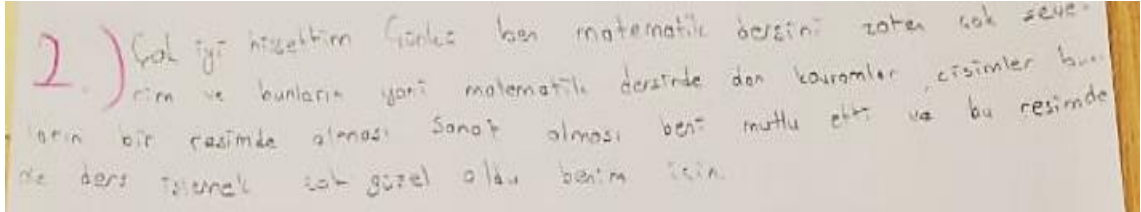 2.) Çok iyi hissettim Çünkü ben matematik dersini zaten çok seve-
rim ve bunların yani matematik dersinde den kavramlar, cisimler bun-
ların bir resimde olması Sanat olması beni mutlu etti ve bu resimde
de ders işlemek çok güzel oldu benim için.